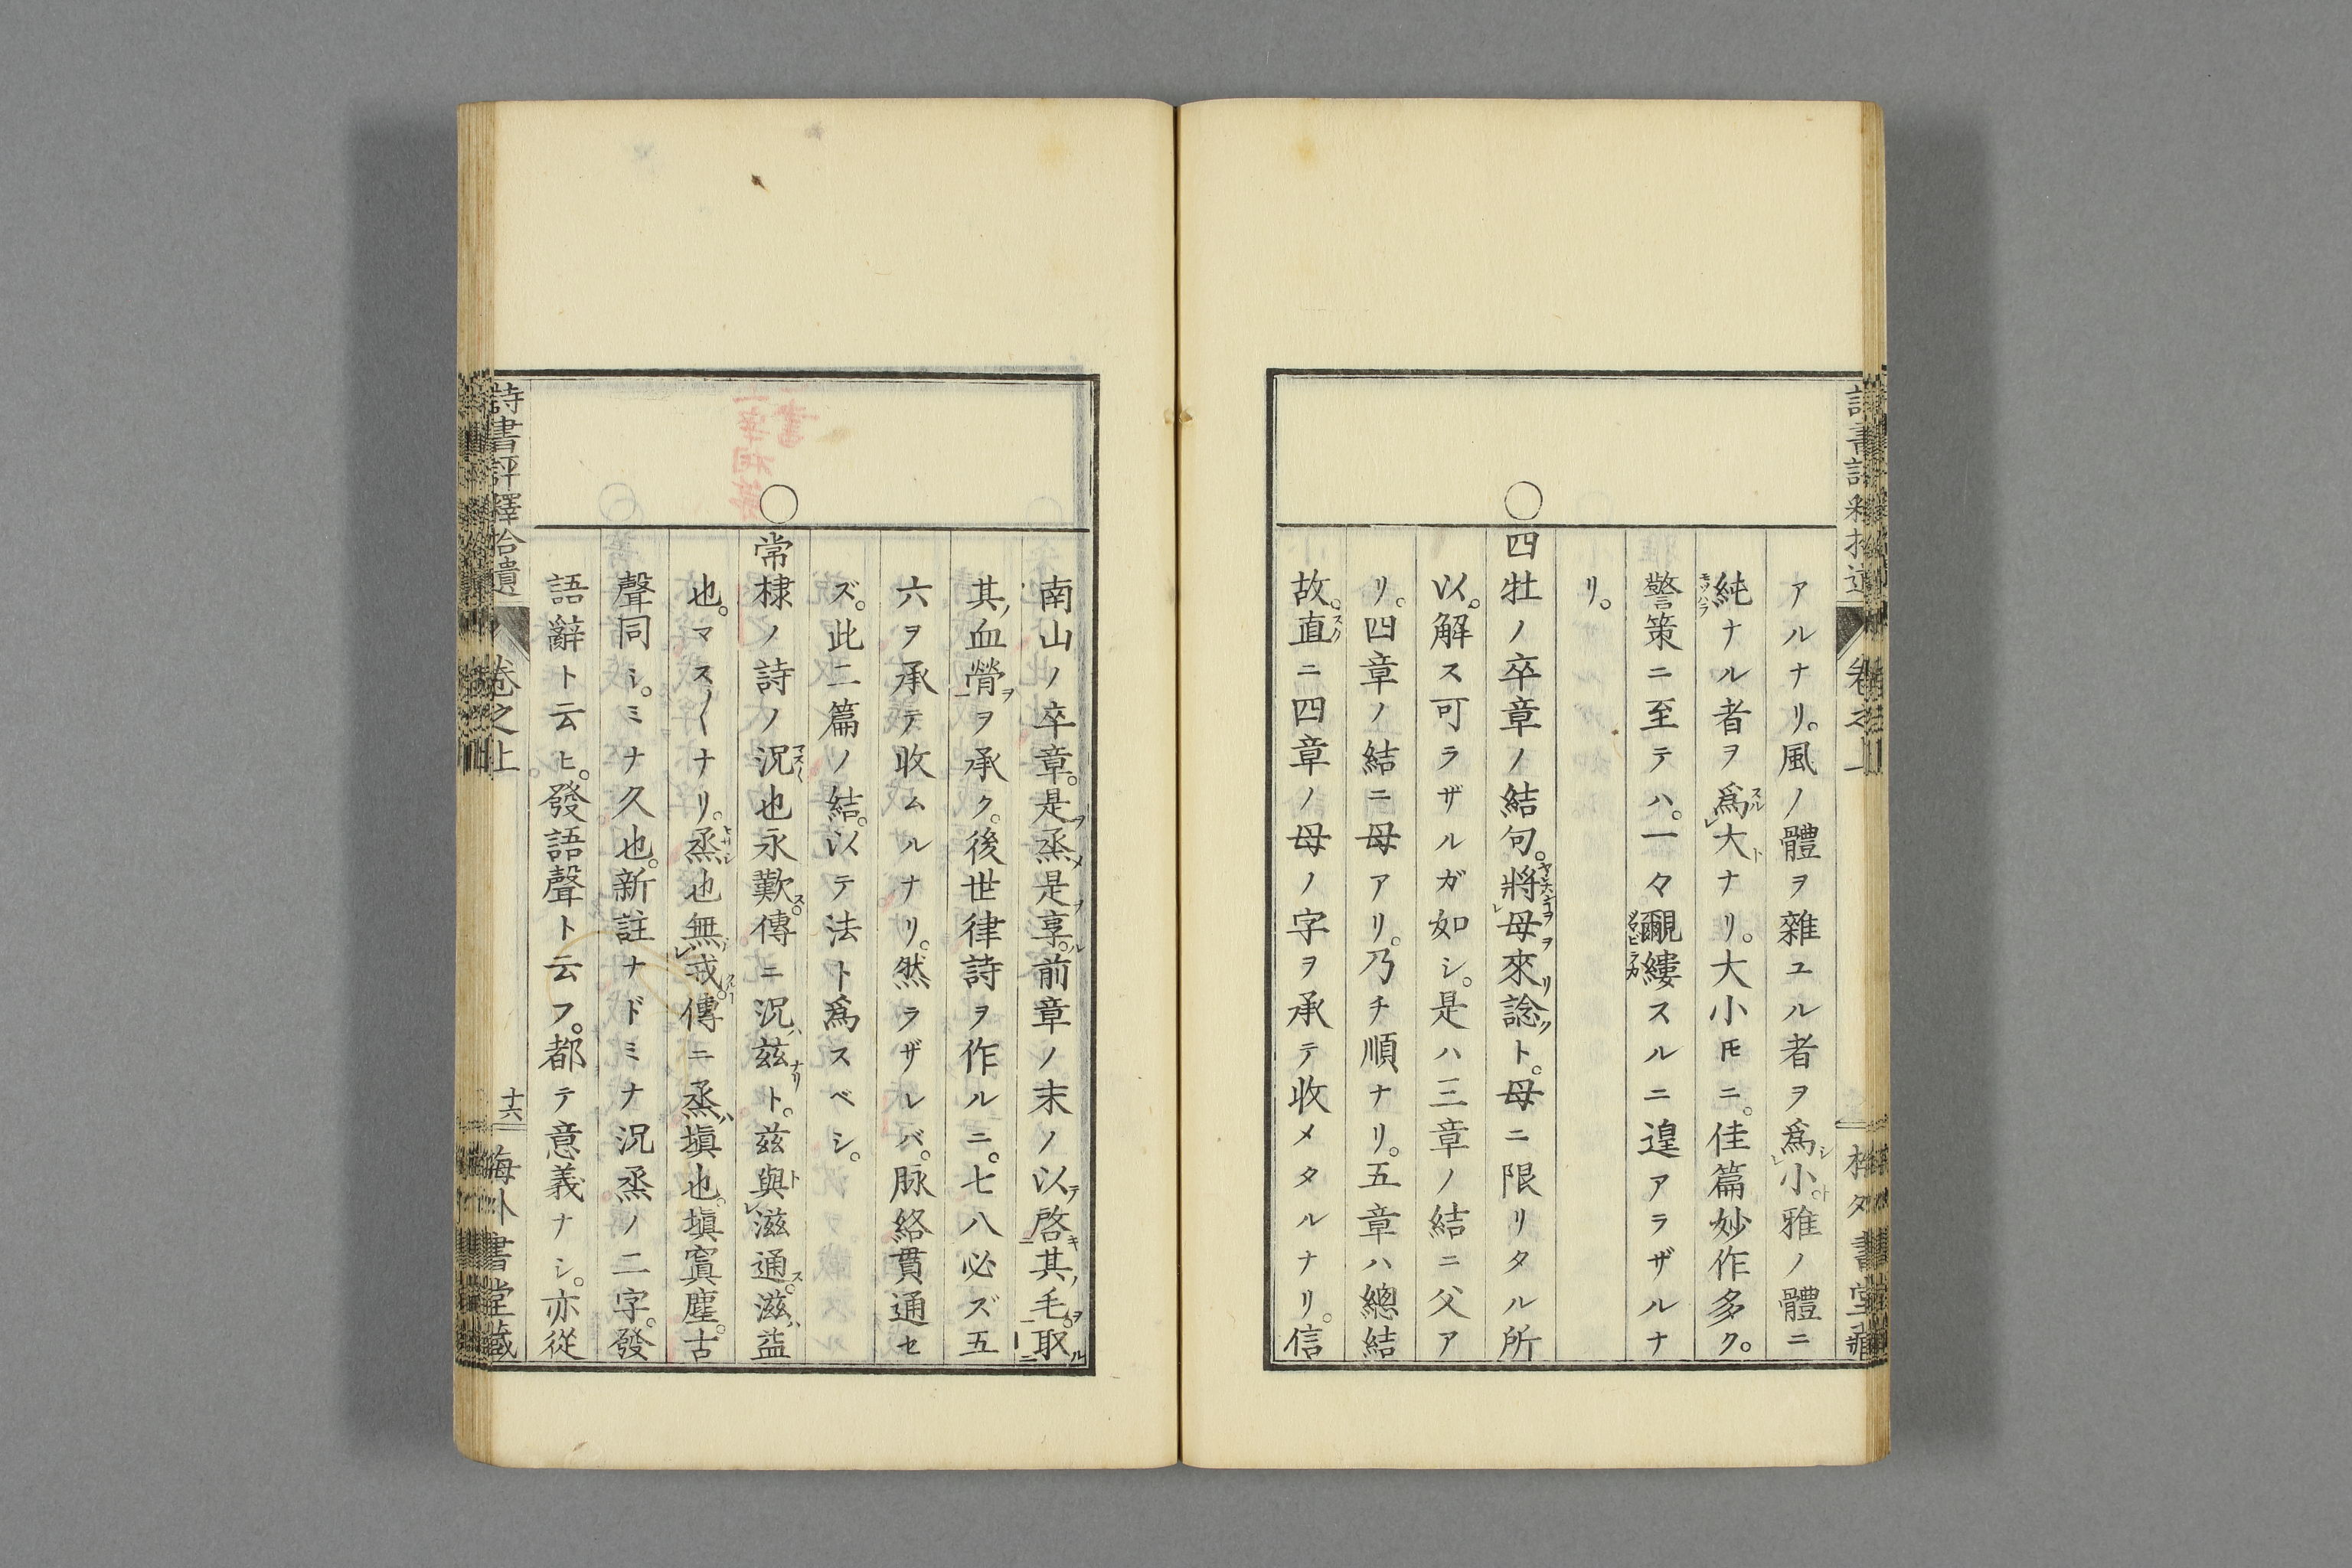 アルナリ。風ノ體ヲ雜ユル者ヲ爲小。雅ノ體ニ
純ナル者ヲ爲大ナリ。大小𪜈ニ。佳篇妙作多ク。
警策ニ至テハ。一々覼縷スルニ遑アラザルナ
リ。
○四牡ノ卒章ノ結句。將母來諗ト。母ニ限リタル所
以。解ス可ラザルガ如シ。是ハ三章ノ結ニ父ア
リ。四章ノ結ニ母アリ。乃チ順ナリ。五章ハ總結
故。直ニ四章ノ母ノ字ヲ承テ收メタルナリ。信
南山ノ卒章。是烝是享。前章ノ末ノ以啓其毛。取
其血膋ヲ承ク。後世律詩ヲ作ルニ。七八必ズ五
六ヲ承テ收ムルナリ。然ラザレバ。脉絡貫通セ
ズ。此二篇ノ結。以テ法ト爲スベシ。
○常棣ノ詩ノ況也永歎。傳ニ況茲ト。茲與滋通。滋益
也。マス〱ナリ。烝也無戎。傳ニ烝塡也。塡窴塵。古
聲同シ。ミナ久也。新註ナドミナ況烝ノ二字。發
語辭ト云ヒ。發語聲ト云フ。都テ意義ナシ。亦從
詩書評釋拾遺
卷之上
十六
書堂藏